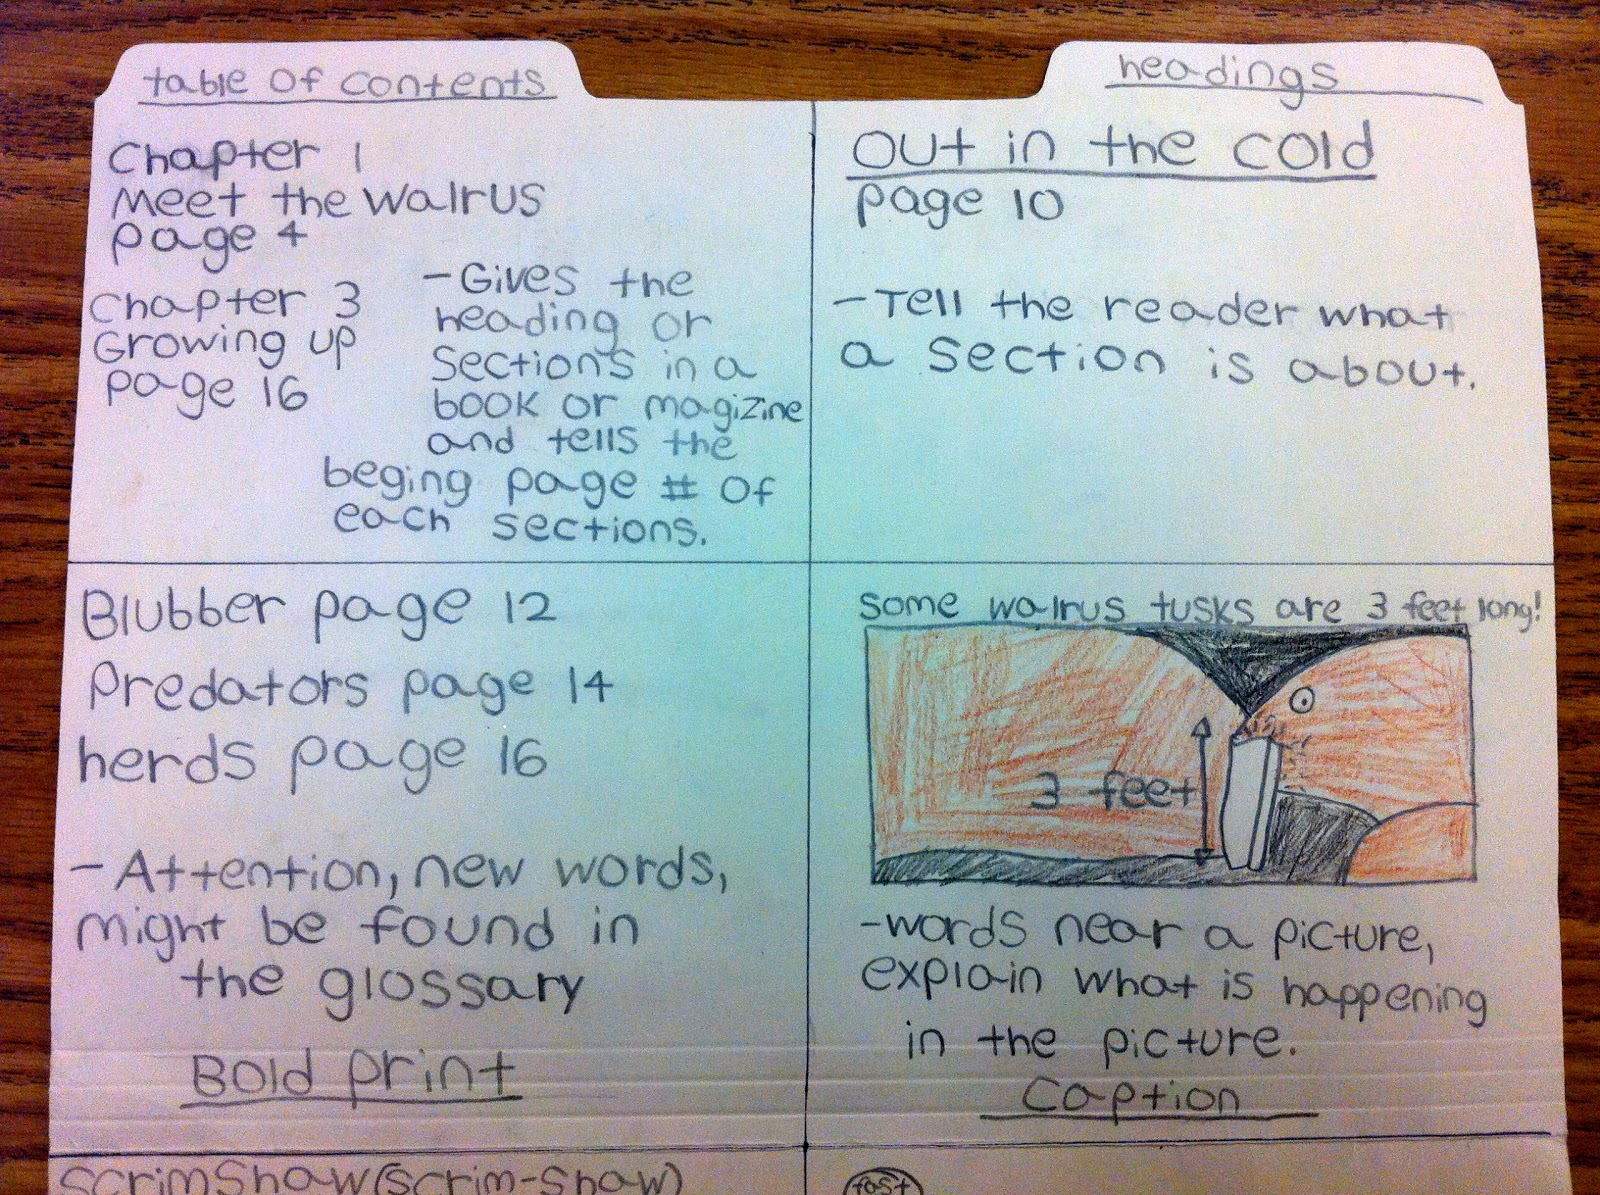 table of contents
Chapter 1
Meet the Walrus
page 4
Chapter 3
Growing up
page 16
-Gives the
heading or
sections in a
book or magizine
and tells the
beging page # of
each sections.
headings
Out in the cold
page 10
-Tell the reader what
a section is about.
Blubber page 12
Predators page 14
herds page 16
-Attention, new words,
might be found in
the glossary
Bold print
some walrus tusks are 3 feet long!
3 feet
-words near a picture,
explain what is happening
in the picture.
Caption
scrimshaw (scrim-shaw)
fast